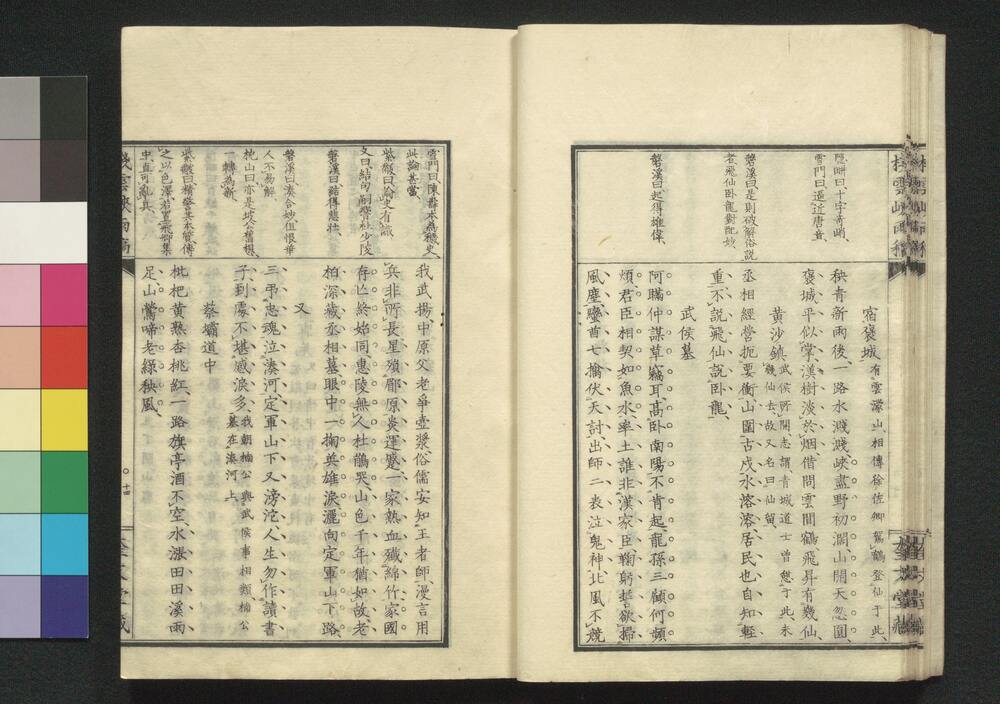 隱畊曰、十字奇峭、
雪門曰、逼近唐音、
磐溪曰、是則破解俗說
者、飛仙臥龍對配妙、
磐溪曰、起得雄偉、
宿褒城 有雲濛山、相傳徐佐卿駕鶴登仙于此、
秧青新雨後、一路水濺濺、峽盡野初濶、山開天忽圓、
褒城平似掌、漢樹淡於烟、借問雲間鶴、飛昇有幾仙、
黃沙鎮 武侯所開、志謂、青城道士曾憩于此、未
幾仙去、故又名曰仙留、
丞相經營扼要衝、山圍古戍水溶溶、居民也自知輕
重、不說飛仙說臥龍、
武侯墓
阿瞞仲謀草竊耳、高臥南陽不肯起、龍孫三顧何頻
煩、君臣相契如魚水、率土誰非漢家臣、鞠躬誓欲掃
風塵、蠻酋七擒伏天討、出師二表泣鬼神、北風不競
雪門曰、陳壽本爲穢史、
此論甚當、
紫皽曰、論史有識、
又曰、結句嗣響杜少陵
磐溪曰、結得悲壯、
磐溪曰、湊合妙、但恨華
人不易解、
枕山曰、亦是坡公舊棋、
一轉爲新、
之以色澤、若置飛卿集
中、直可亂眞、
我武揚、中原父老爭壺漿、俗儒安知王者師、漫言用
兵非所長、星殞郿原炎運蹙、一家熱血殲綿竹、家國
存亡終始同、惠陵無人杜鵑哭、山色千年猶如故、老
柏深藏丞相墓、眼中一掬英雄淚、灑向定軍山下路、
又
三弔忠魂泣湊河、定軍山下又滂沱、人生勿作讀書
子、到處不堪感淚多、我朝楠公與武侯事相類、楠公
墓在湊河上、
蔡壩道中
枇杷黃熟杏桃紅、一路旗亭酒不空、水漲田田溪雨
足、山鶯啼老綠秧風、
棧雲峽雨稿
十四